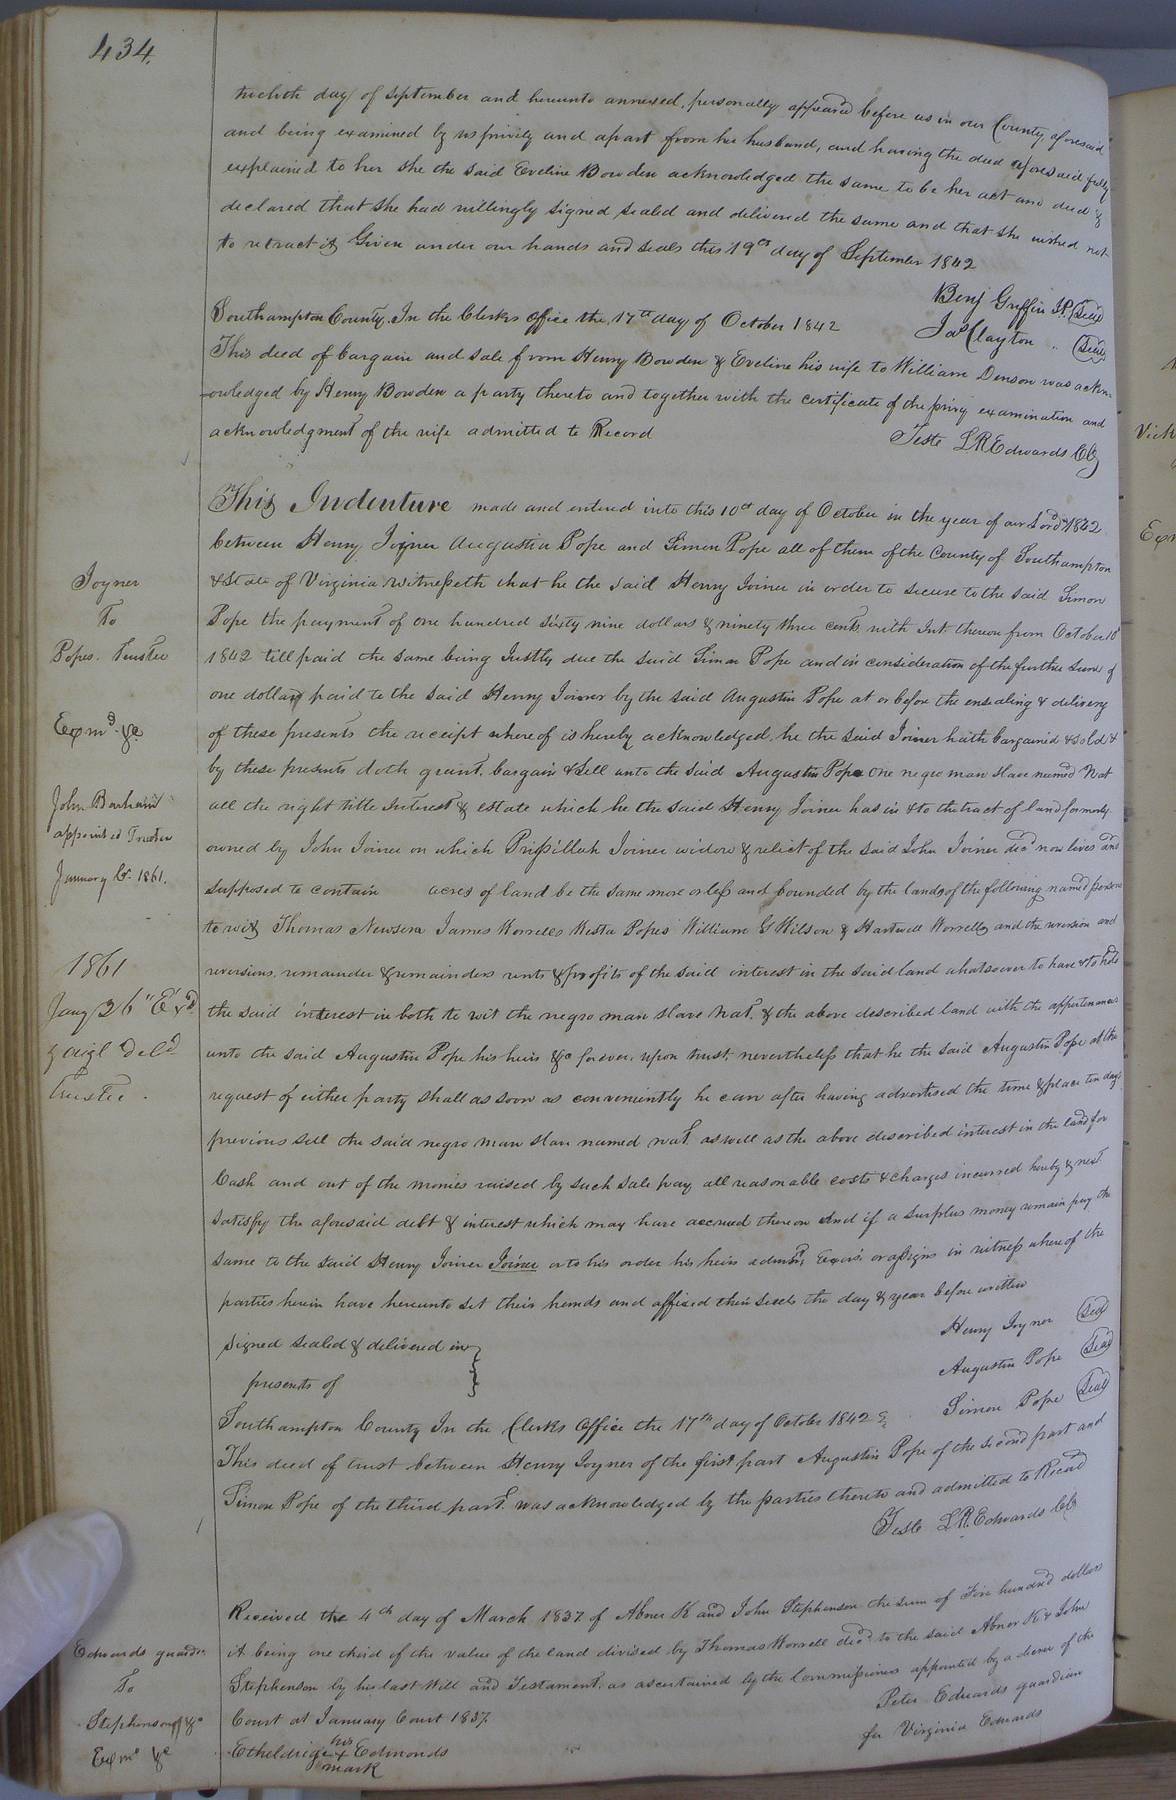 434.
twelvth day of September and hereunto annexed, personally appeared before us in our County aforesaid
and being examined by us privily and apart from her husband, and having the deed aforesaid fully
explained to her she the said Eveline Bowden acknowledged the same to be her act and deed &
declared that she had willingly signed sealed and delivered the same and that she wished not
to retract it Given under our hands and seals this 19th day of September 1842
Benj Griffin J.P. (Seal)
Jas Clayton " (Seal)
Southampton County. In the Clerks Office the 17th day of October 1842
This deed of bargain and sale from Henry Bowden & Eveline his wife to William Denson was ackn-
owledged by Henry Bowden a party thereto and together with the certificate of the privy examination and
acknowledgment of the wife admitted to Record
Teste L R Edwards CC
This Indenture made and entered into this 10th day of October in the year of our Lord 1842
between Henry Joyner Augustin Pope and Simon Pope all of them of the County of Southampton
Joyner
To
Popes. Trustee
Exmd &c
John Barham
appointed Trustee
January Ct. 1861.
1861
Jany 26" Exd
& origl Deld
Trustee.
& State of Virginia witnesseth that he the said Henry Joiner in order to secure to the said Simon
Pope the payment of one hundred sixty nine dollars & ninety three cents with Int. thereon from October 10th
1842 till paid the same being Justly due the said Simon Pope and in consideration of the further sum of
one dollar paid to the said Henry Joiner by the said Augustin Pope at or before the ensealing & delivery
of these presents the receipt whereof is hereby acknowledged. he the said Joiner hath bargained & sold &
by these presents doth grant, bargain & Sell unto the said Augustin Pope one negro man slave named Nat
all the right title Interest & estate which he the said Henry Joiner has in & to the tract of land formerly
owned by John Joiner on which Prissillah Joiner widow & relict of the said John Joiner decd now lives and
supposed to contain acres of land be the same more or less and bounded by the lands of the following named persons
to wit Thomas Newsom James Worrells Westa Popes William G Wilson & Hartwell Worrells and the reversion and
reversions, remainder & remainders rents & profits of the said interest in the said land whatsoever to have & to hold
the said interest in both to wit the negro man slave Nat. & the above described land with the appertenances
unto the said Augustin Pope his heirs &c forever. upon trust, nevertheless that he the said Augustin Pope at the
request of either party shall as soon as conveniently he can after having advertised the time & place ten days
previous sell the said negro man slave named nat as well as the above described interest in the land for
Cash and out of the monies raised by such sale pay all reasonable costs & charges incurred hereby & next
satisfy the aforesaid debt & interest which may have accrued thereon And if a surplus money remain pay the
same to the said Henry Joiner Joiner or to his order his heirs admrs, Exors. or assigns in witness whereof the
parties herein have hereunto set their hands and affixed their seals the day & year before written
Signed sealed & delivered in }
presents of
Henry Joyner (Seal)
Augustin Pope (Seal)
Simon Pope (Seal)
Southampton County In the Clerks Office the 17th day of October 1842
This deed of trust between Henry Joyner of the first part Augustin Pope of the second part and
Simon Pope of the third part. was acknowledged by the parties thereto and admitted to Record
Teste L.R. Edwards CC
Edwards guardn
To
Stephensons &c
Exmd &c
Received the 4th day of March 1837 of Abner K and John Stephenson the sum of Five hundred dollars
it being one third of the value of the land divised by Thomas Worrell decd to the said Abner K & John
Stephenson by his last Will and Testament. as ascertained by the Commissioners appointed by a decree of the
Court at January Court 1837.
Peter Edwards guardian
for Virginia Edwards
Etheldrige his + mark Edmonds